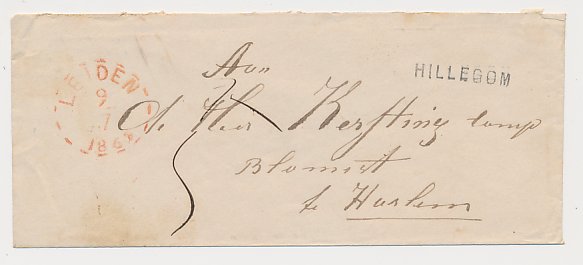 LEIDEN
9
7
186
HILLEGOM
Aan
de Heer Kersting Comp
Blomist
te Harlem
5